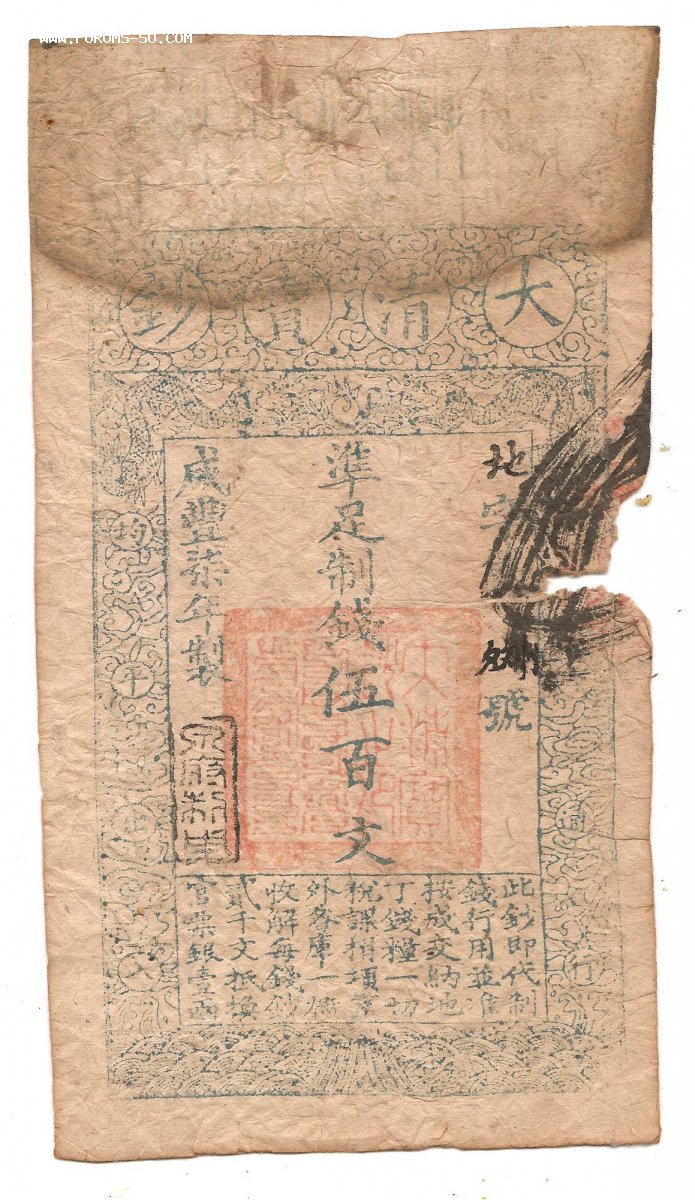 www.forums-su.com
大清寶鈔
地字
號
準足制錢伍百文
咸豐柒年製
均平
通行
此鈔即代制
錢行用並准
按成交納地
丁錢糧一切
稅課捐項京
外各庫一概
收解每錢鈔
貳千文抵換
官票銀壹兩